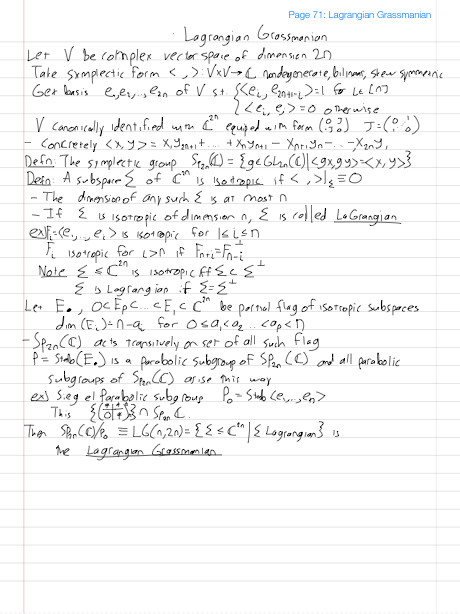 Page 71: Lagrangian Grassmanian
Lagrangian Grassmanian
Let V be complex vector space of dimension 2n
Take symplectic form < , >: V×V→ℂ nondegenerate, bilinear, skew symmetric
Get basis e₁,e₂,...,e₂ₙ of V s.t. {<eᵢ, e₂ₙ₊₁₋ᵢ>=1 for i∈[n]
<eᵢ, eⱼ>=0 otherwise
V canonically identified with ℂ²ⁿ equipped with form (0 J; -J 0) J=(0 1; 1 0)
- Concretely <x,y> = x₁y₂ₙ + ... + xₙyₙ₊₁ - xₙ₊₁yₙ - ... - x₂ₙy₁
Defn: The symplectic group Sp₂ₙ(ℂ) = {g∈GL₂ₙ(ℂ)|<gx,gy>=<x,y>}
Defn: A subspace Σ of ℂ²ⁿ is isotropic if < , >|Σ ≡ 0
- The dimension of any such Σ is at most n
- If Σ is isotropic of dimension n, Σ is called LaGrangian
ex) Fᵢ=<e₁,...,eᵢ> is isotropic for 1≤i≤n
Fᵢ isotropic for i>n if Fₙ₊ᵢ=Fₙ₋ᵢ^⊥
Note Σ ≤ ℂ²ⁿ is isotropic iff Σ ⊂ Σ^⊥
Σ is Lagrangian if Σ=Σ^⊥
Let E•, 0⊂Eₚ⊂...⊂E₁⊂ℂ²ⁿ be partial flag of isotropic subspaces
dim(Eᵢ)=n-aᵢ for 0≤a₁<a₂...<aₚ<n
- Sp₂ₙ(ℂ) acts transitively on set of all such flag
P=Stab(E•) is a parabolic subgroup of Sp₂ₙ(ℂ) and all parabolic
subgroups of Sp₂ₙ(ℂ) arise this way
ex) Siegel Parabolic subgroup P₀=Stab<e₁,...,eₙ>
This {(* *; 0 *)} ∩ Sp₂ₙ ℂ.
Then Sp₂ₙ(ℂ)/P₀ ≡ LG(n,2n)={Σ≤ℂ²ⁿ|Σ Lagrangian} is
the Lagrangian Grassmanian